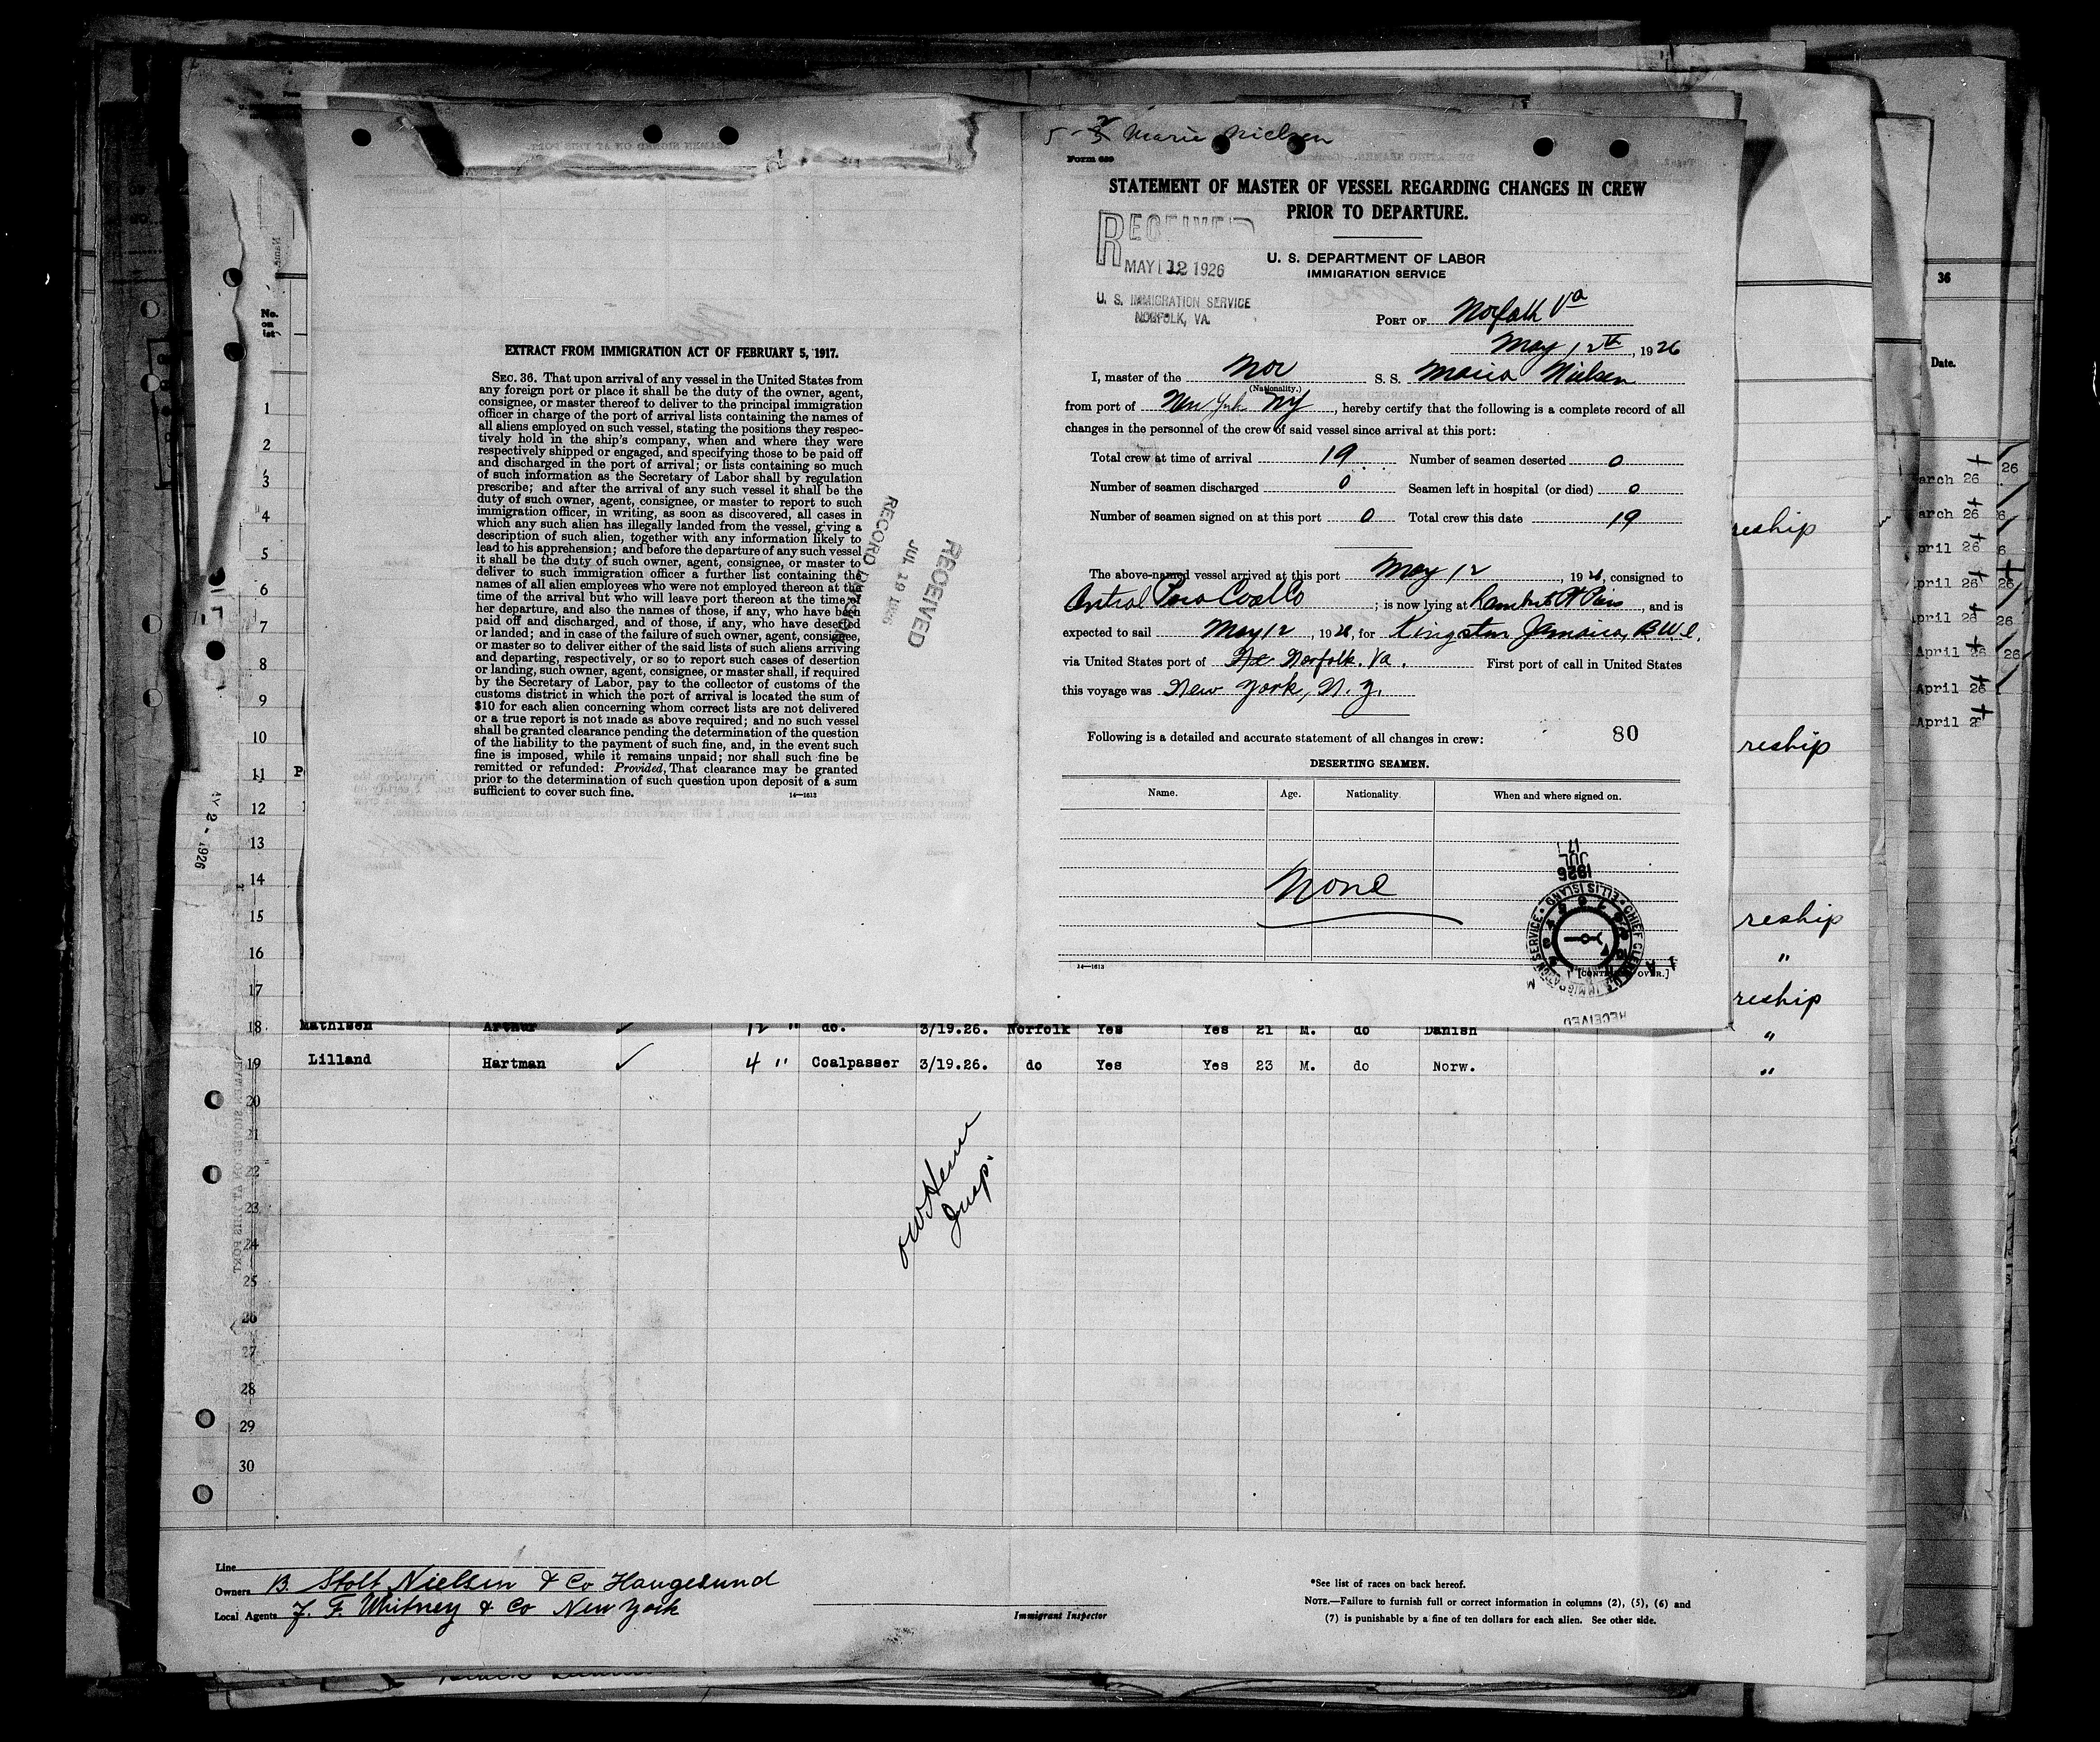 EXTRACT FROM IMMIGRATION ACT OF FEBRUARY 5, 1917.
SEC. 36. That upon arrival of any vessel in the United States from
any foreign port or place it shall be the duty of the owner, agent,
consignee, or master thereof to deliver to the principal immigration
officer in charge of the port of arrival lists containing the names of
all aliens employed on such vessel, stating the positions they respec-
tively hold in the ship's company, when and where they were
respectively shipped or engaged, and specifying those to be paid off
and discharged in the port of arrival; or lists containing so much
of such information as the Secretary of Labor shall by regulation
prescribe; and after the arrival of any such vessel it shall be the
duty of such owner, agent, consignee, or master to report to such
immigration officer, in writing, as soon as discovered, all cases in
which any such alien has illegally landed from the vessel, giving a
description of such alien, together with any information likely to
lead to his apprehension; and before the departure of any such vessel
it shall be the duty of such owner, agent, consignee, or master to
deliver to such immigration officer a further list containing the
names of all alien employees who were not employed thereon at the
time of the arrival but who will leave port thereon at the time of
her departure, and also the names of those, if any, who have been
paid off and discharged, and of those, if any, who have deserted
or landed; and in case of the failure of such owner, agent, consignee,
or master so to deliver either of the said lists of such aliens arriving
and departing, respectively, or so to report such cases of desertion
or landing, such owner, agent, consignee, or master shall, if required
by the Secretary of Labor, pay to the collector of customs of the
customs district in which the port of arrival is located the sum of
$10 for each alien concerning whom correct lists are not delivered
or a true report is not made as above required; and no such vessel
shall be granted clearance pending the determination of the question
of the liability to the payment of such fine, and, in the event such
fine is imposed, while it remains unpaid; nor shall such fine be
remitted or refunded: Provided, That clearance may be granted
prior to the determination of such question upon deposit of a sum
sufficient to cover such fine.
14—1613
RECEIVED
JUL 19 1926
RECORD
Marie Nielsen
Form 689
STATEMENT OF MASTER OF VESSEL REGARDING CHANGES IN CREW
PRIOR TO DEPARTURE.
RECEIVED
MAY 12 1926
U. S. IMMIGRATION SERVICE
NORFOLK, VA.
U. S. DEPARTMENT OF LABOR
IMMIGRATION SERVICE
PORT OF Norfolk Va
May 12th, 1926
I, master of the Nor S. S. Maria Nielsen
(Nationality.)
from port of New York NY, hereby certify that the following is a complete record of all
changes in the personnel of the crew of said vessel since arrival at this port:
Total crew at time of arrival 19 Number of seamen deserted 0
Number of seamen discharged 0 Seamen left in hospital (or died) 0
Number of seamen signed on at this port 0 Total crew this date 19
The above-named vessel arrived at this port May 12, 1926, consigned to
Coal Co; is now lying at, and is
expected to sail May 12, 1926, for Kingston Jamaica, B.W.I.
via United States port of Norfolk. Va. First port of call in United States
this voyage was New York, N. Y.
Following is a detailed and accurate statement of all changes in crew: 80
DESERTING SEAMEN.
Name. Age. Nationality When and where signed on.
None
14—1613
1926
JUL
17
CHIEF CLERK U.S. IMMIGRATION SERVICE ELLIS ISLAND
RECEIVED
No.
on
list
1
2
3
4
5
6
7
8
9
10
11
12
13
14
15
16
17
18 Mathisen Arthur ✓ 12 " do. 3/19.26. Norfolk Yes Yes 21 M. do Danish "
19 Lilland Hartman ✓ 4 " Coalpasser 3/19.26. do Yes Yes 23 M. do Norw. "
20
21
22
23
24
25
26
27
28
29
30
Insp.
reship
reship
reship
"
reship
36
Date.
arch 26
arch 26
pril 26
pril 26
pril 26
April 26
April 26
April 2
Line
Owners B. Stolt Nielsen & Co Haugesund
Local Agents F. F. Whitney & Co New York
Immigrant Inspector
*See list of races on back hereof.
NOTE.—Failure to furnish full or correct information in columns (2), (5), (6) and
(7) is punishable by a fine of ten dollars for each alien. See other side.